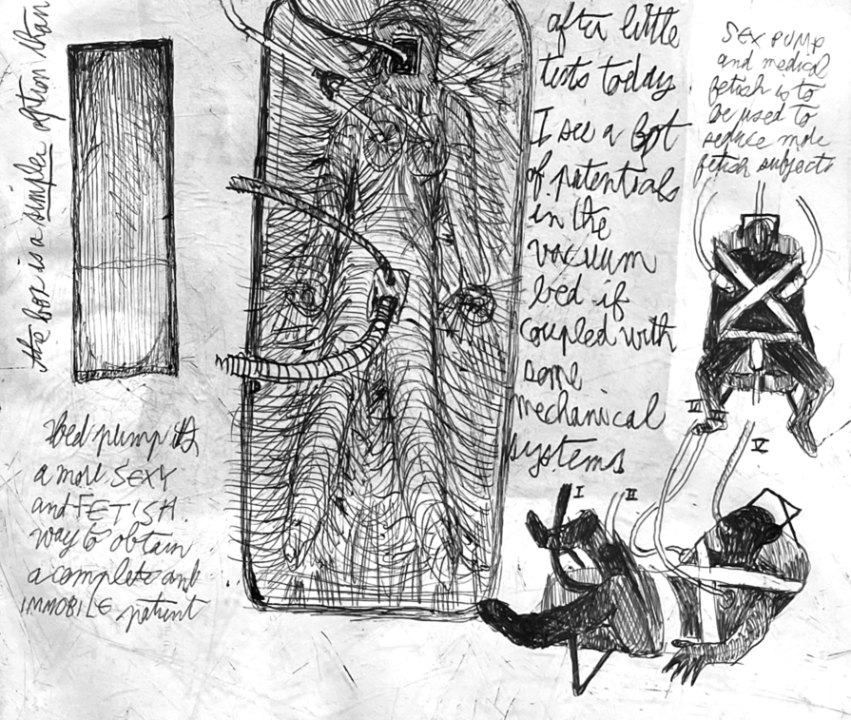 the box is a simpler option than
after little
tests today.
I see a lot
of potentials
in the
vacuum
bed if
coupled with
some
mechanical
systems
SEX PUMP
and medical
fetish is to
be used to
seduce more
fetish subjects
Bed pump is
a more SEXY
and FETISH.
way to obtain
a complete and
IMMOBILE patient
VI
V
I
II